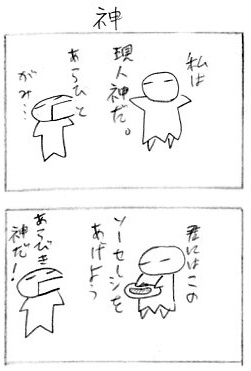 神
私は
現人神だ。
あらひと
がみ…
君にはこの
ソーセージを
あげよう
あらびき
神だー!